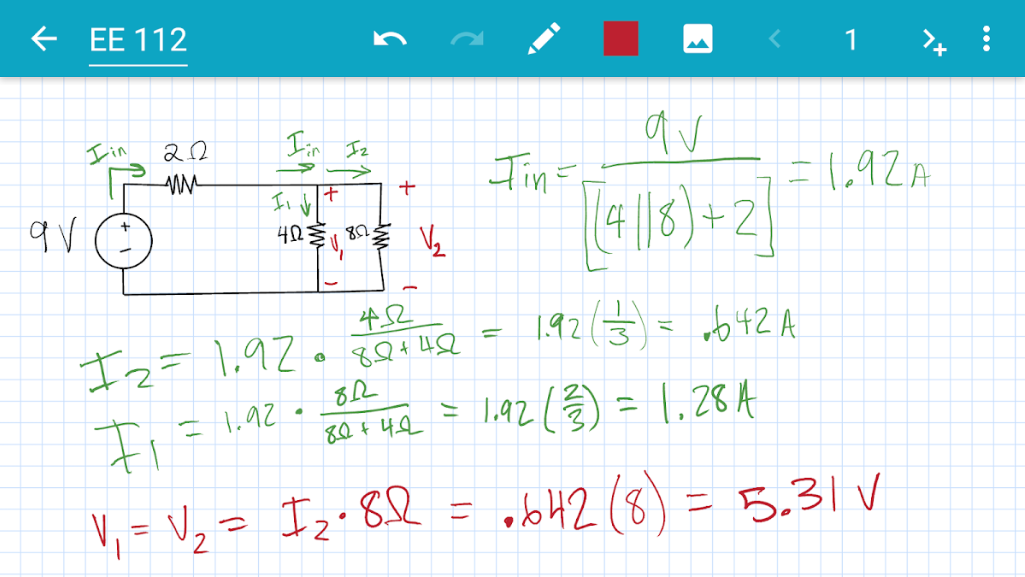 EE 112
1
Iin 2Ω Iin I2
I1 + +
9V + - 4Ω V1 8Ω V2
- -
Iin = 9V / [(4||8)+2] = 1.92A
I2 = 1.92 • 4Ω / 8Ω + 4Ω = 1.92 (1/3) = .642 A
I1 = 1.92 • 8Ω / 8Ω + 4Ω = 1.92 (2/3) = 1.28A
V1 = V2 = I2 • 8Ω = .642 (8) = 5.31 V